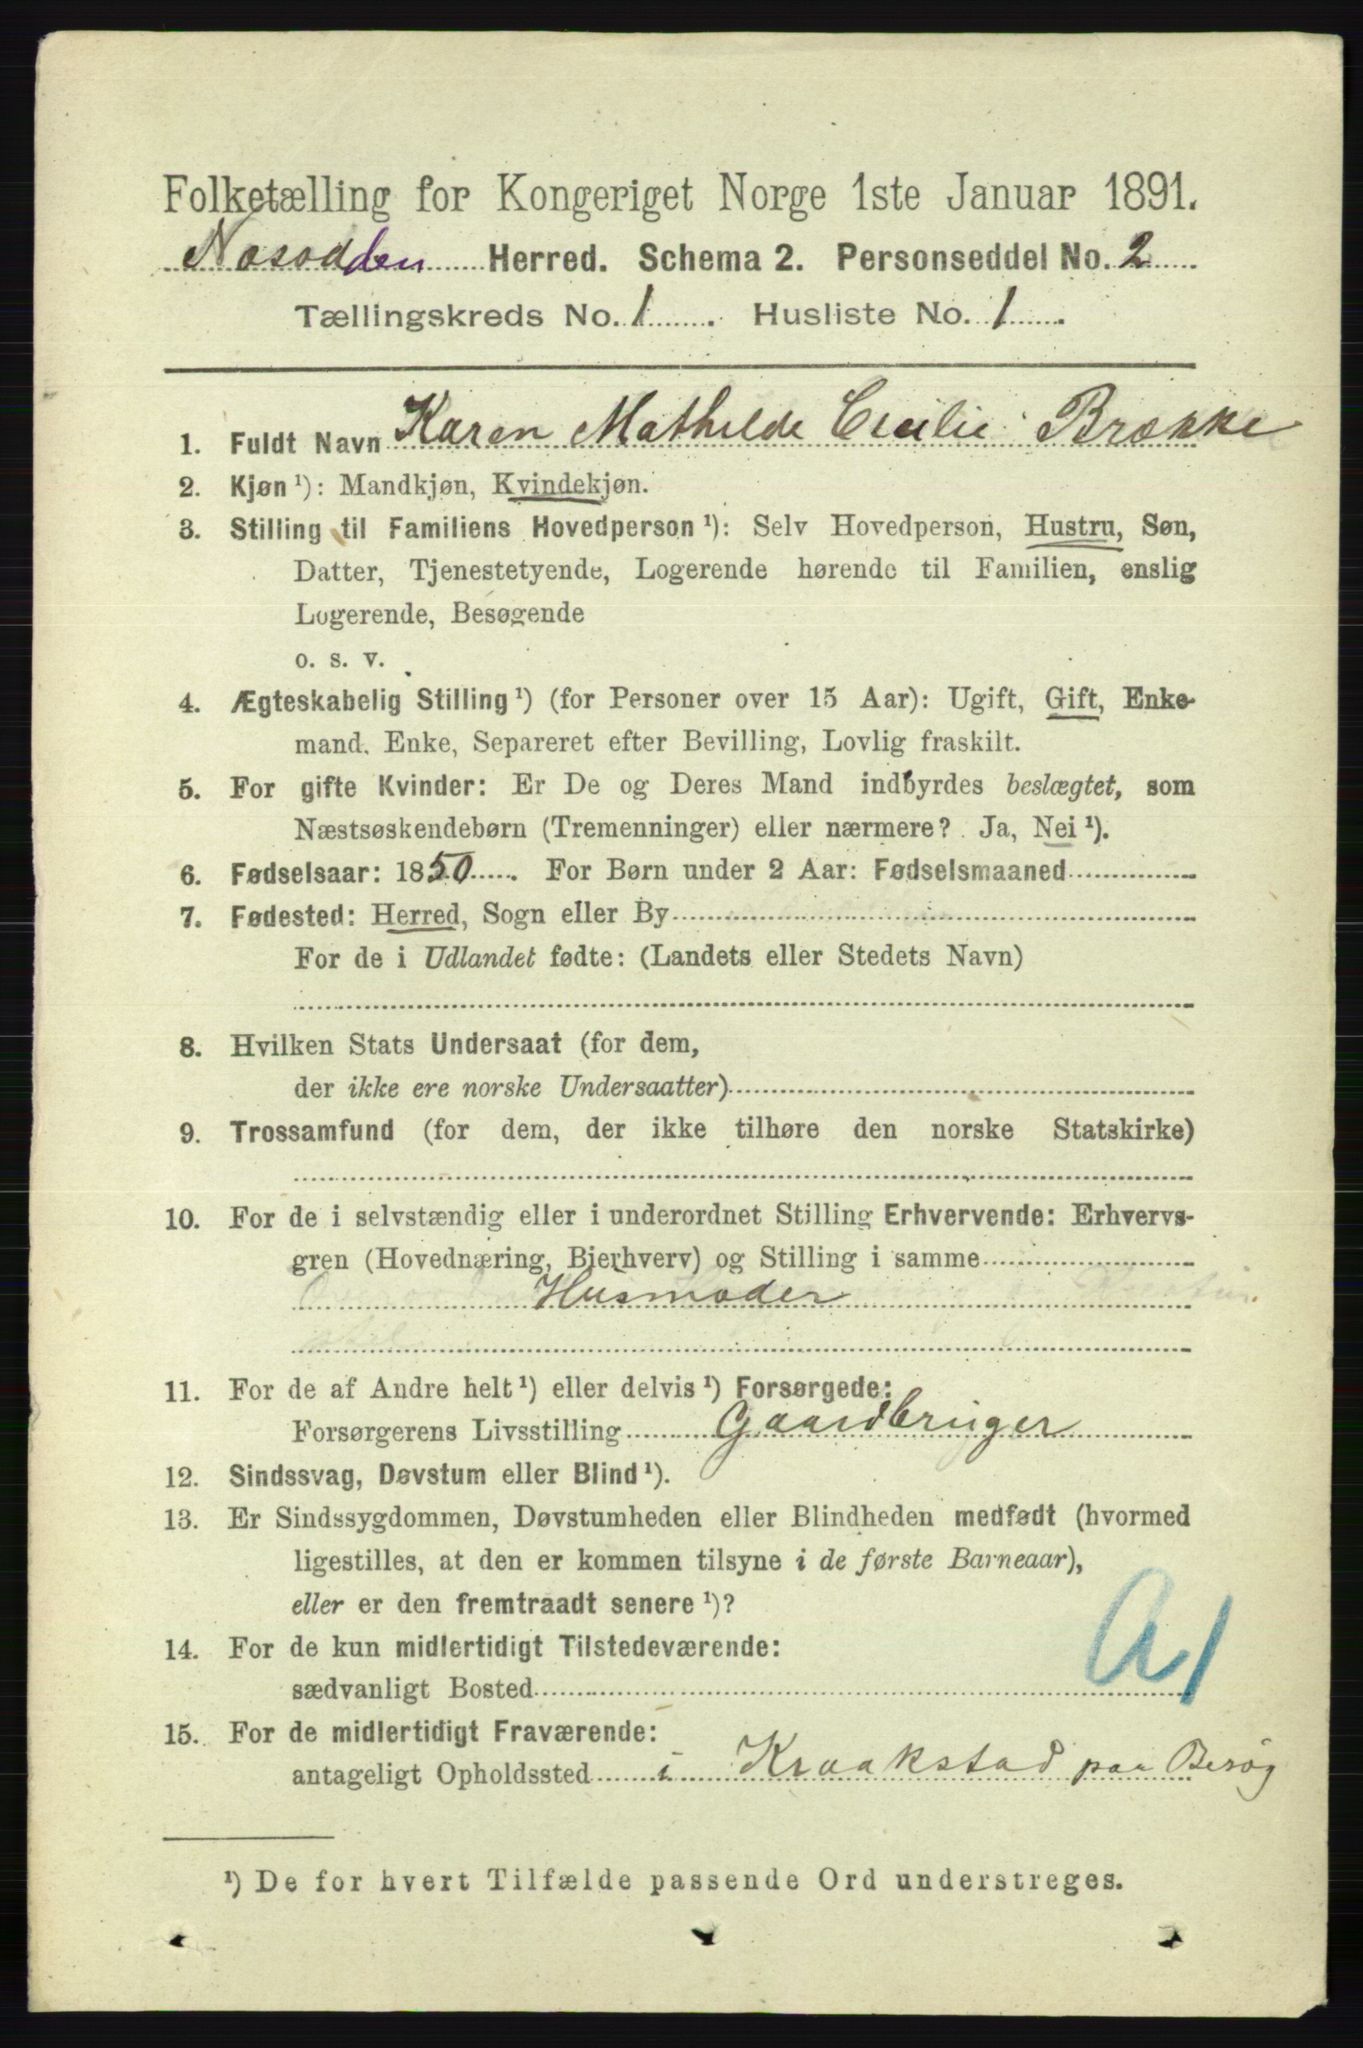 Folketælling for Kongeriget Norge 1ste Januar 1891.
Næsodden Herred. Schema 2. Personseddel No. 2
Tællingskreds No. 1. Husliste No. 1.
1. Fuldt Navn Karen Mathilde Cecilie Brække
2. Kjøn ¹): Mandkjøn, Kvindekjøn.
3. Stilling til Familiens Hovedperson ¹): Selv Hovedperson, Hustru, Søn,
Datter, Tjenestetyende, Logerende hørende til Familien, enslig
Logerende, Besøgende
o. s. v.
4. Ægteskabelig Stilling ¹) (for Personer over 15 Aar): Ugift, Gift, Enke-
mand, Enke, Separeret efter Bevilling, Lovlig fraskilt.
5. For gifte Kvinder: Er De og Deres Mand indbyrdes beslægtet, som
Næstsøskendebørn (Tremenninger) eller nærmere? Ja, Nei ¹).
6. Fødselsaar: 1850. For Børn under 2 Aar: Fødselsmaaned
7. Fødested: Herred, Sogn eller By
For de i Udlandet fødte: (Landets eller Stedets Navn)
8. Hvilken Stats Undersaat (for dem,
der ikke ere norske Undersaatter)
9. Trossamfund (for dem, der ikke tilhøre den norske Statskirke)
10. For de i selvstændig eller i underordnet Stilling Erhvervende: Erhvervs-
gren (Hovednæring, Bierhverv) og Stilling i samme
Husmoder
11. For de af Andre helt ¹) eller delvis ¹) Forsørgede:
Forsørgerens Livsstilling Gaardbruger
12. Sindssvag, Døvstum eller Blind ¹).
13. Er Sindssygdommen, Døvstumheden eller Blindheden medfødt (hvormed
ligestilles, at den er kommen tilsyne i de første Barneaar),
eller er den fremtraadt senere ¹)?
14. For de kun midlertidigt Tilstedeværende:
sædvanligt Bosted
A1
15. For de midlertidigt Fraværende:
antageligt Opholdssted i Kraakstad paa Besøg
¹) De for hvert Tilfælde passende Ord understreges.